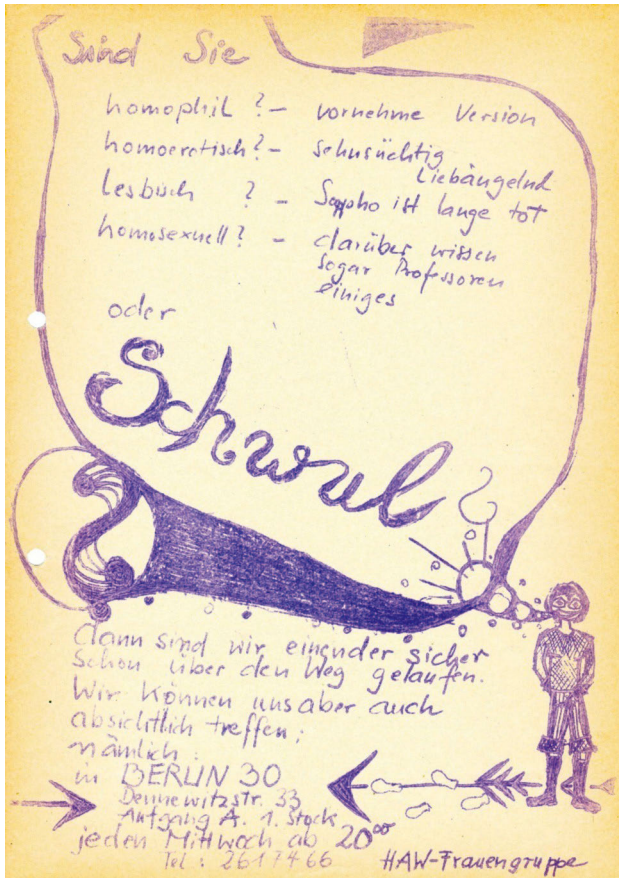 Sind Sie
homophil ? - vornehme Version
homoerotisch ? - sehnsüchtig
Liebäugelnd
Lesbisch ? - Sappho ist lange tot
homosexuell ? - darüber wissen
sogar Professoren
einiges
oder
Schwul ?
dann sind wir einander sicher
schon über den Weg gelaufen.
Wir können uns aber auch
absichtlich treffen;
nämlich:
in BERLIN 30
Dennewitzstr. 33
Aufgang A. 1. Stock
jeden Mittwoch ab 20⁰⁰
Tel : 2617466
HAW-Frauengruppe